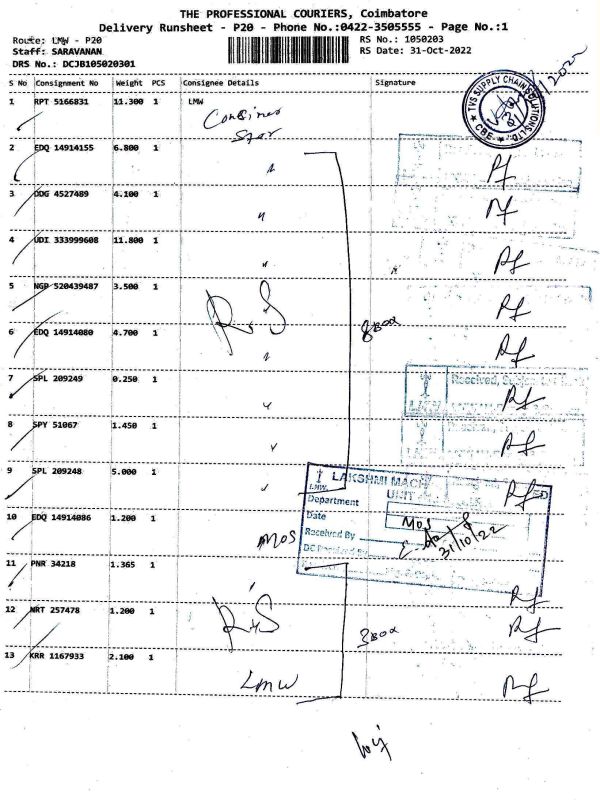 THE PROFESSIONAL COURIERS, Coimbatore
Delivery Runsheet - P20 - Phone No.:0422-3505555 - Page No.:1
Route: LMW - P20
RS No.: 1050203
Staff: SARAVANAN
RS Date: 31-Oct-2022
DRS No.: DCJB105020301
S No Consignment No Weight PCS Consignee Details Signature
1 RPT 5166831 11.300 1 LMW
TVS SUPPLY CHAIN SOLUTIONS LTD. CBE
2 EDQ 14914155 6.800 1
3 DDG 4527489 4.100 1
4 UDI 333999608 11.800 1
5 NGP 520439487 3.500 1
R.S
8 Box
6 EDQ 14914080 4.700 1
7 SPL 209249 0.250 1
Received,
8 SPY 51067 1.450 1
9 SPL 209248 5.000 1
LAKSHMI MACH
UNIT
LMW
Department MOS
Date 31/10/22
Received By
10 EDQ 14914086 1.200 1
MOS
11 PNR 34218 1.365 1
12 NRT 257478 1.200 1
R.S
3 Box
13 KRR 1167933 2.100 1
LMW